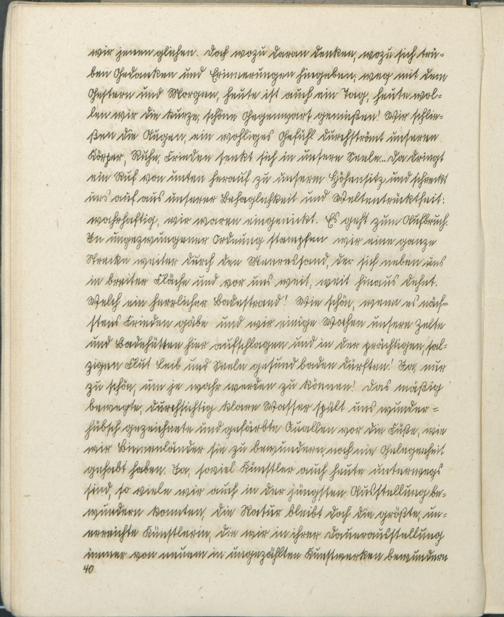 wir jenen glichen. Doch wozu daran denken, wozu sich trü-
ben Gedanken und Erinnerungen hingeben, weg mit dem
Gestern und Morgen, heute ist auch ein Tag, heute wol-
len wir die kurze, schöne Gegenwart genießen! Wir schlie-
ßen die Augen, ein wohliges Gefühl durchströmt unseren
Körper, Ruhe, Frieden senkt sich in unsere Seele. Da dringt
ein Ruf von unten herauf zu unserm Höhensitz und schreckt
uns auf aus unserer Behaglichkeit und Weltentrücktheit:
wahrhaftig, wir waren eingenickt. Es geht zum Aufbruch.
In ungezwungener Ordnung stampfen wir eine ganze
Strecke weiter durch den Meeressand, der sich neben uns
in breiter Fläche und vor uns weit, weit hinaus dehnt.
Welch ein herrlicher Badestrand! Wie schön, wenn es näch-
stens Frieden gäbe und wir einige Wochen unsere Zelte
und Badehütten hier aufschlagen und in der prächtigen, sal-
zigen Flut Leib und Seele gesund baden dürften! Ja, nur
zu schön, um je wahr werden zu können! Das mäßig
bewegte, durchsichtig klare Wasser spült uns wunder-
hübsch gezeichnete und gefärbte Quallen vor die Füße, wie
wir Binnenländer sie zu bewundern noch nie Gelegenheit
gehabt haben. Ja, soviel Künstler auch heute unterwegs
sind, so viele wir auch in der jüngsten Ausstellung be-
wundern konnten, die Natur bleibt doch die größte, un-
erreichte Künstlerin, die wir in ihrer Dauerausstellung
immer von neuem in ungezählten Kunstwerken bewundern
40